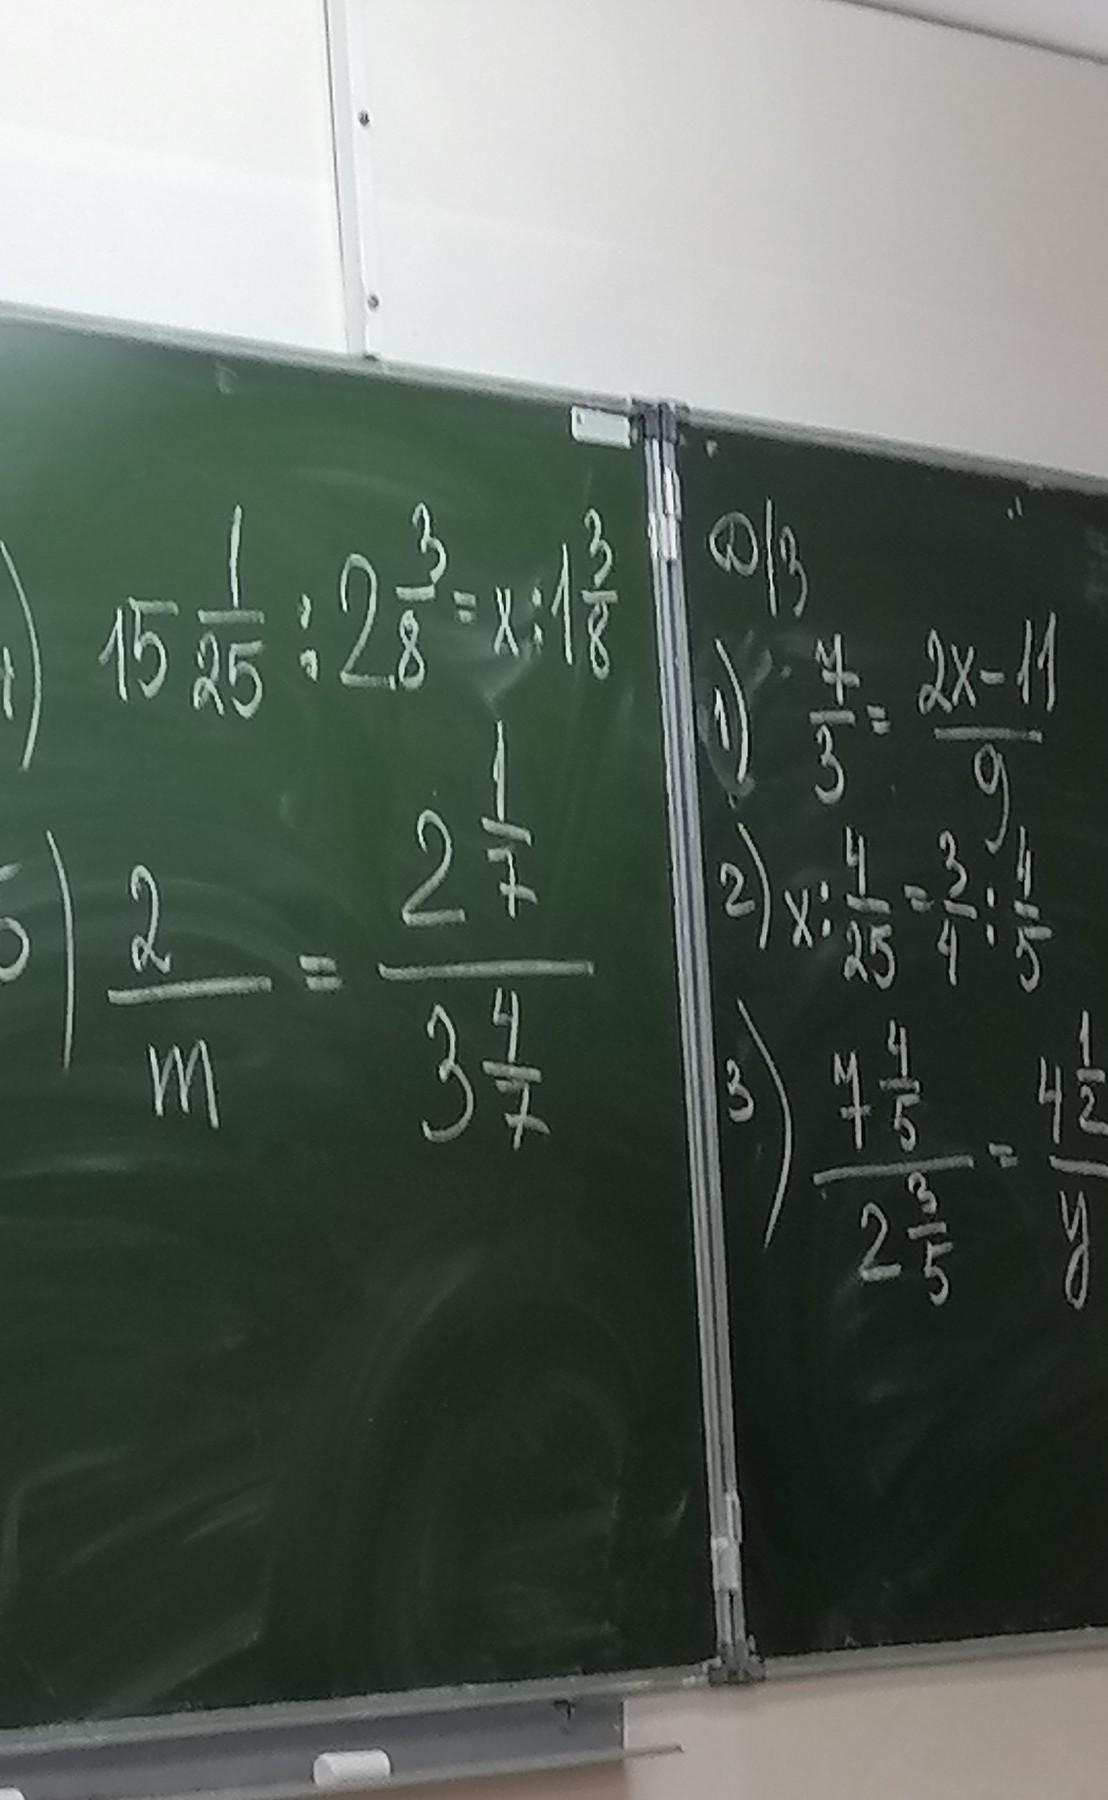 4) 15 1/25 : 2 3/8 = x : 1 3/8
5) 2/m = 2 1/7 / 3 4/7
Д/З
1) 7/3 = 2x-11/9
2) x : 4/25 = 3/4 : 4/5
3) 7 4/5 / 2 3/5 = 4 1/2 / y